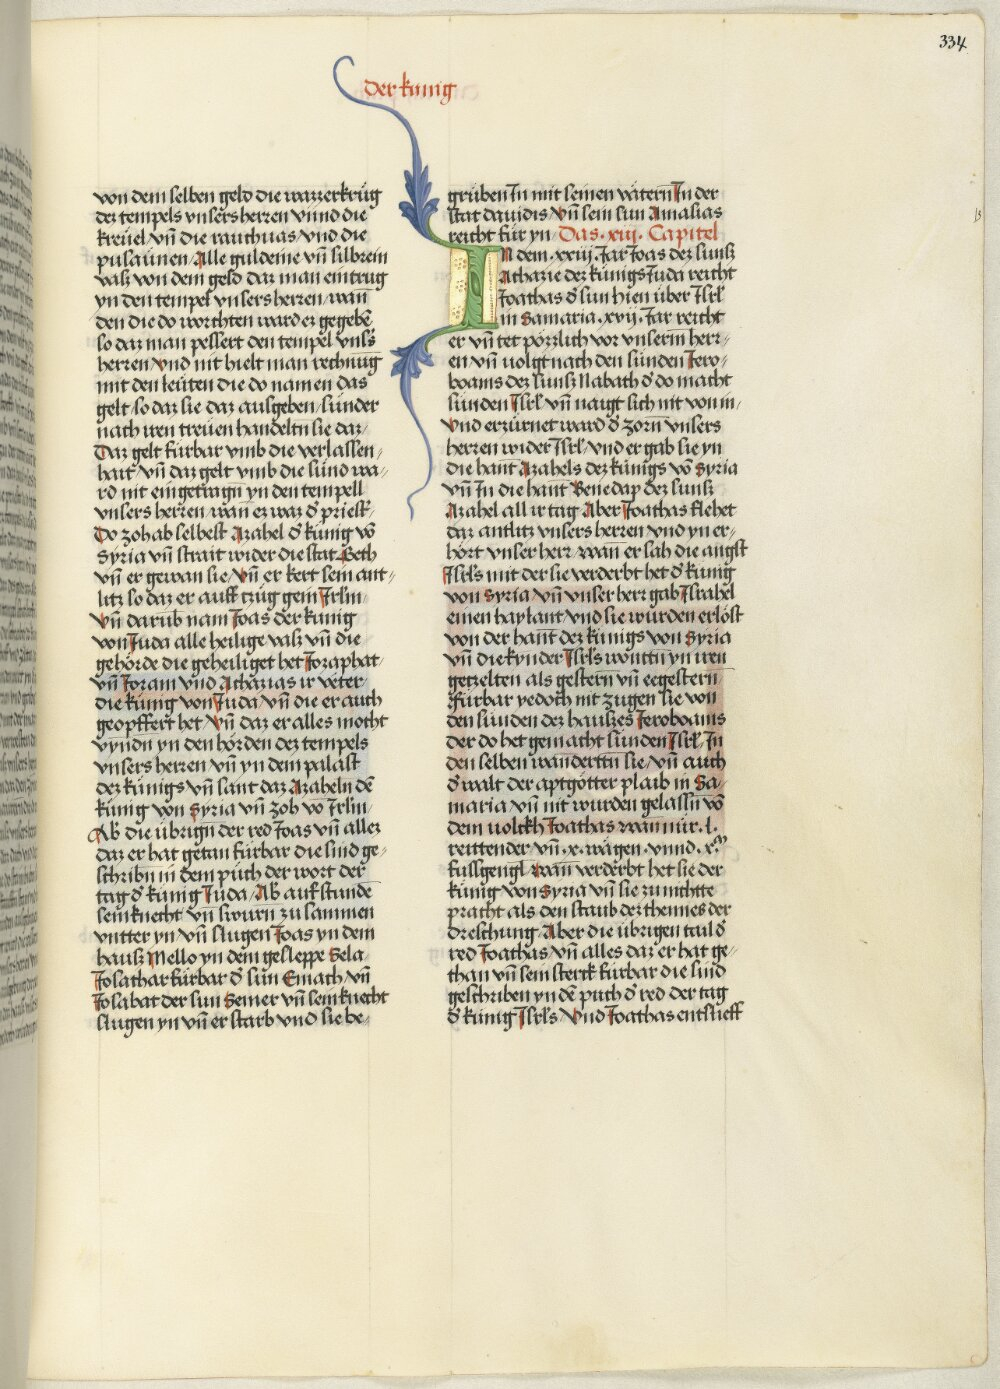 334
der kunig
von dem selben geld die wazzerkrüg
dez tempels vnsers herren vnnd die
kreüel vn̄ die rauchuas vnd die
pusaunen / Alle guldeine vn̄ silbrein
vasz von dem geld daz man eintrug
yn den tempel vnsers herren / wan̄
den die do worchten ward ez gegebē
so daz man pessert den tempel vns͛s
herren / vnd nit hielt man rechnūg
mit den leüten die do namen das
gelt / so daz sie daz ausgeben / sunder
nach iren treüen handeltn sie daz /
Daz gelt fürbar vmb die verlassen⸗
hait / vn̄ daz gelt vmb die sünd wa⸗
rd nit eingetragn̄ yn den tempell
vnsers herren / wan ez waz d͛ priest⸗
Do zoh ab selbest Azahel d͛ künig vō
Syria vn̄ strait wider die stat Geth
vn̄ er gewan sie / vn̄ er kert sein ant⸗
litz so daz er auff tzüg gein Jrlm̄
vn̄ darüb nam Joas der kunig
von Juda alle heilige vasz vn̄ die
gehörde die geheiliget het Jozaphat
vn̄ Joram vnd Athazias ir veter
die küng von Juda / vn̄ die er auch
geopffert het / vn̄ daz er alles mocht
vyndn̄ yn den hörden dez tempels
vnsers herren vn̄ yn dem palast
dez künigs vn̄ sant daz Azaheln dē
künig von Syria vn̄ zoh vō Jrlm̄
Ab͛ die übrign̄ der red Joas vn̄ allez
daz er hat getan fürbar die sind ge⸗
schribn̄ in dem püch der wort der
tag d͛ künig Juda / Ab͛ auf stundē
sein knecht vn̄ swurn zu sammen
vntter yn / vn̄ slugen Joas yn dem
hausz Mello yn dem gesleppe Sela /
Josathar fürbar d͛ sün Emath / vn̄
Josabat der sun Semer vn̄ sein knecht
slugen yn vn̄ er starb vnd sie be⸗
grüben Jn mit seinen vätern Jn der
stat dauidis / vn̄ sein sun Amalias
reicht für yn Das · xiij · Capitel
IN dem · xxiij · Jar Joas dez sunsz
Athazie dez künigs Juda reicht
Joathas d͛ sun hieu über Jsrl̄
in Samaria · xvij · Jar reicht
er vn̄ tet pözzlich vor vnserm herr⸗
en vn̄ uolgt nach den sunden Jero⸗
boams dez sunsz Nabath d͛ do macht
sunden Jsrl̄ vn̄ naigt sich nit von in /
vnd erzürnet ward d͛ zorn vnsers
herren wider Jsrl̄ / vnd er gab sie yn
die hant Azahels dez künigs vō Syria
vn̄ Jn die hant Benedap dez sunsz
Azahel all ir tag Aber Joathas flehet
daz antlitz vnsers herren vnd yn er⸗
hört vnser herr / wan er sah die angst
Jsrl̄s mit der sie verderbt het d͛ künig
von Syria vn̄ vnser herr gab Jsrahel
einen haylant / vnd sie wurden erlöst
von der hant dez künigs von Syria
vn̄ die kynder Jsrl̄s wontn̄ yn iren
getzelten als gestern vn̄ eegestern
Fürbar yedoch nit zugen sie von
den sunden dez hauszes Jeroboams
der do het gemacht sunden Jsrl̄ / Jn
den selben wandertn̄ sie / vn̄ auch
d͛ walt der aptgötter plaib in Sa⸗
maria vn̄ nit wurden gelassn̄ vō
dem uolckh Joathas wan nür · l ·
reittender vn̄ · x · wägen · vnnd · xᵐ
fussgengl / wan verderbt het sie der
künig von Syria vn̄ sie zu nichtte
pracht als den staub dez thennes der
dreschung / Aber die übrigen tail d͛
red Joathas vn̄ alles daz er hat ge⸗
than vn̄ sein sterck fürbar die sind
geschriben yn dē puch d͛ red der tag
d͛ künig Jsrl̄s / vnd Joathas entslieff